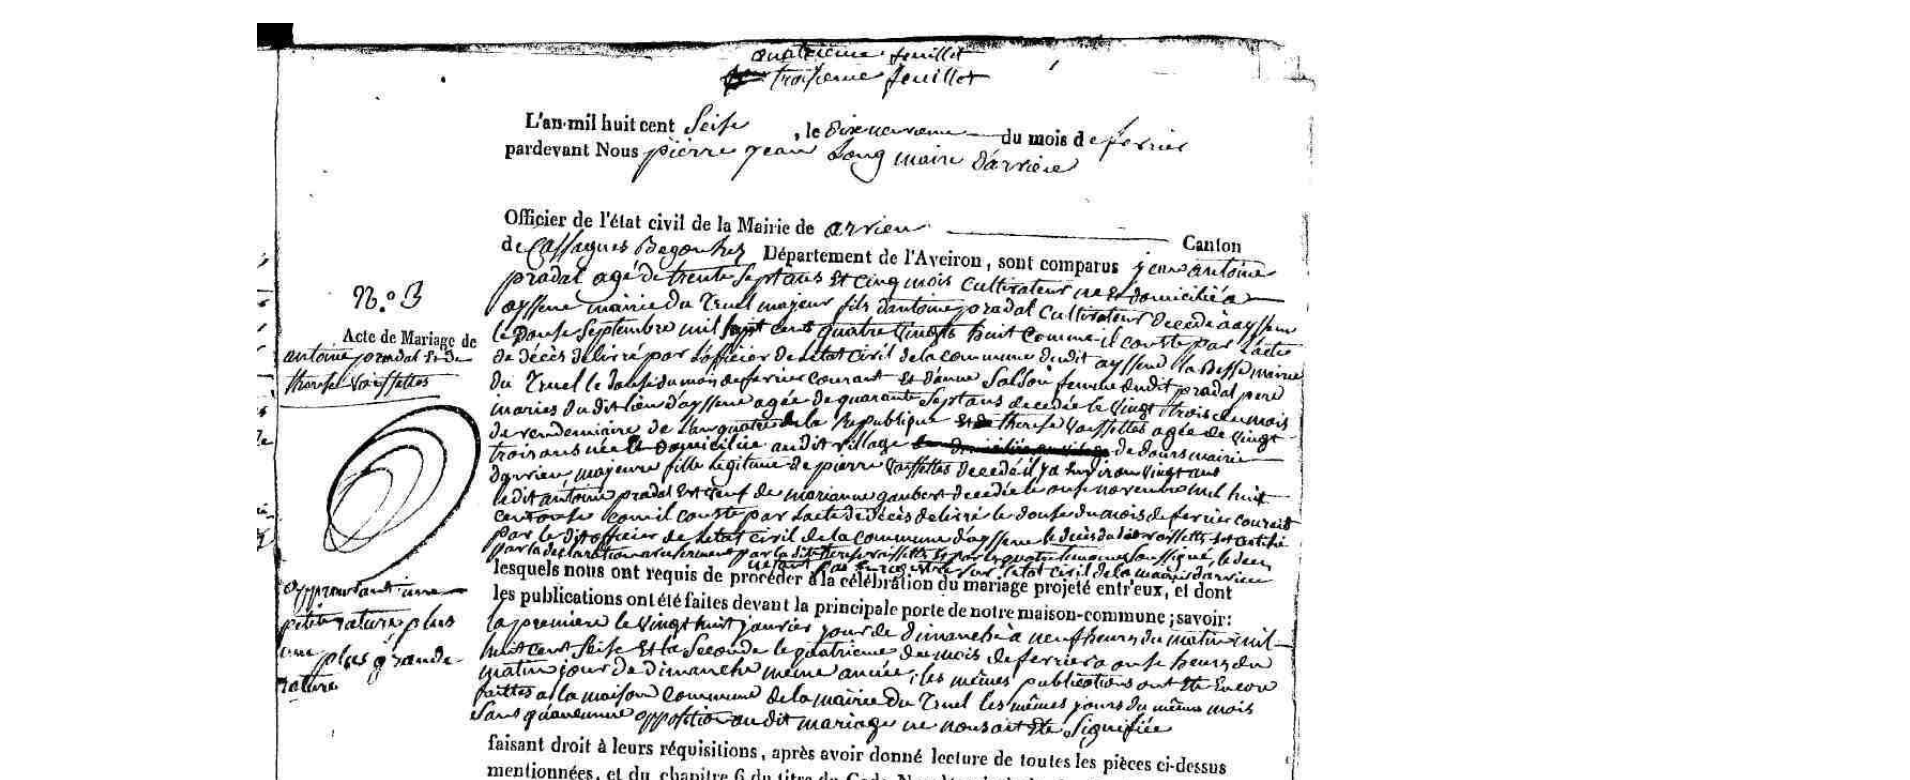 quatrieme feuillet
troisieme feuillet
L'an mil huit cent Seise , le dixneuvieme du mois de fevrier
pardevant Nous pierre jean Long maire d'arviere
Officier de l'état civil de la Mairie de arvieu Canton
de Cassagnes Begonhes Département de l'Aveiron, sont comparus jean antoine
pradal agé de trente Sept ans et cinq mois Cultivateur né et domicilié a
ayssene mairie du Truel majeur fils d'antoine pradal Cultivateur decedé a ayssene
le douse Septembre mil sept cent quatre vingts huit comme il conste par l'acte
de décès délivré par l'officier de letat civil de la commune dudit ayssene la Besse mairie
du Truel le douse du mois de fevrier courant et d'anne femme dudit pradal pere
mariés du dit lieu d'ayssene agée de quarante Sept ans decedée le vingt trois du mois
de vendemiaire de l'an quatre de la Republique et de therese vaissettes agée de vingt
trois ans née et domiciliée audit village de dours mairie
darvieu, majeure fille legitime de pierre vaissettes decedé il y a environ vingt ans
le dit antoine pradal est veuf de marianne gaubert decedée le onse novembre mil huit
cent onse comil conste par lacte de décès delivré le douse du mois de fevrier courant
par le dit officier de letat civil de la commune d'ayssene le décès du dit vaissettes est certifié
par la declaration a serment par la dite therese vaissettes et par les quatre temoins soussigné, le deces
netant pas enregistré sur letat civil de la mairie darvieu
lesquels nous ont requis de procéder à la célébration du mariage projeté entr'eux, et dont
les publications ont été faites devant la principale porte de notre maison-commune; savoir:
la premiere le vingt huit janvier jour de dimanche à neuf heures du matin mil
huit cent Seise et la Seconde le quatrieme du mois de fevrier a onse heures du
matin jour de dimanche même année, les mêmes publications ont été encore
faittes a la maison Commune de la mairie du Truel les mêmes jours du même mois
Sans qu'aucunne opposition au dit mariage ne nous ait été Signifiée
faisant droit à leurs réquisitions, après avoir donné lecture de toutes les pièces ci-dessus
mentionnées, et du chapitre 6 du titre du Code
N.º 3
Acte de Mariage de
antoine pradal et de
therese vaissettes
approuvant une
petite rature plus
une plus grande
rature